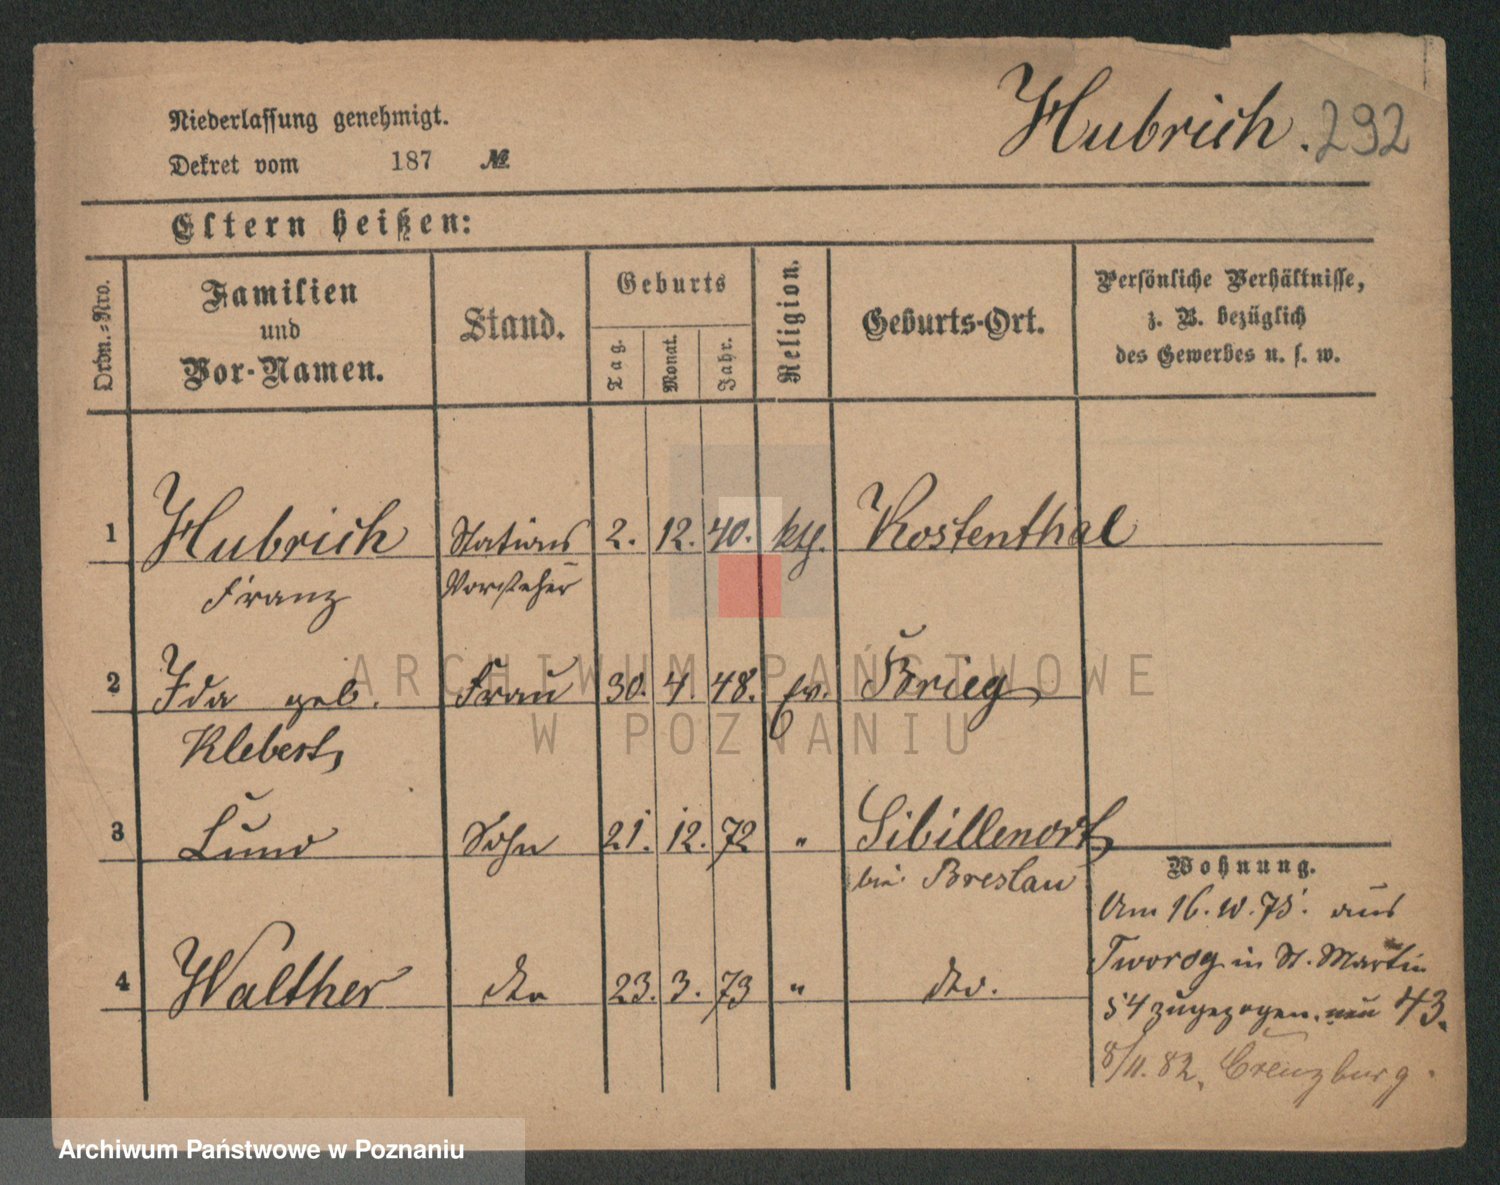 Hubrich. 292
Niederlassung genehmigt.
Dekret vom 187 №
Eltern heißen:
Ordn.=Nro.
Familien
und
Vor-Namen.
Stand.
Geburts
Tag.
Monat.
Jahr.
Religion.
Geburts-Ort.
Persönliche Verhältnisse,
z. B. bezüglich
des Gewerbes u. s. w.
1 Hubrich Stations 2. 12. 40. kth. Kostenthal
Franz Vorsteher
2 Ida geb. Frau 30. 4. 48. ev. Brieg
Klebert
3 Sohn 21. 12. 72 " Sibillenort
bei Breslau
4 Walther dto 23. 3. 73 " dto.
Wohnung.
Am 16. 10. 75. aus
Tworog in St. Martin
54 zugezogen. neu 43.
8/11. 82. Creuzburg.
ARCHIWUM PAŃSTWOWE
W POZNANIU
Archiwum Państwowe w Poznaniu